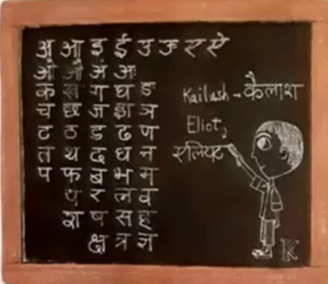 अ आ इ ई उ ऊ ए ऐ
ओ औ अं अः
क ख ग घ ङ
च छ ज झ ञ
ट ठ ड ढ ण
त थ द ध न
प फ ब भ म
य र ल व
श ष स ह
क्ष त्र ज्ञ
Kailash - कैलाश
Eliot,
एलियट
K